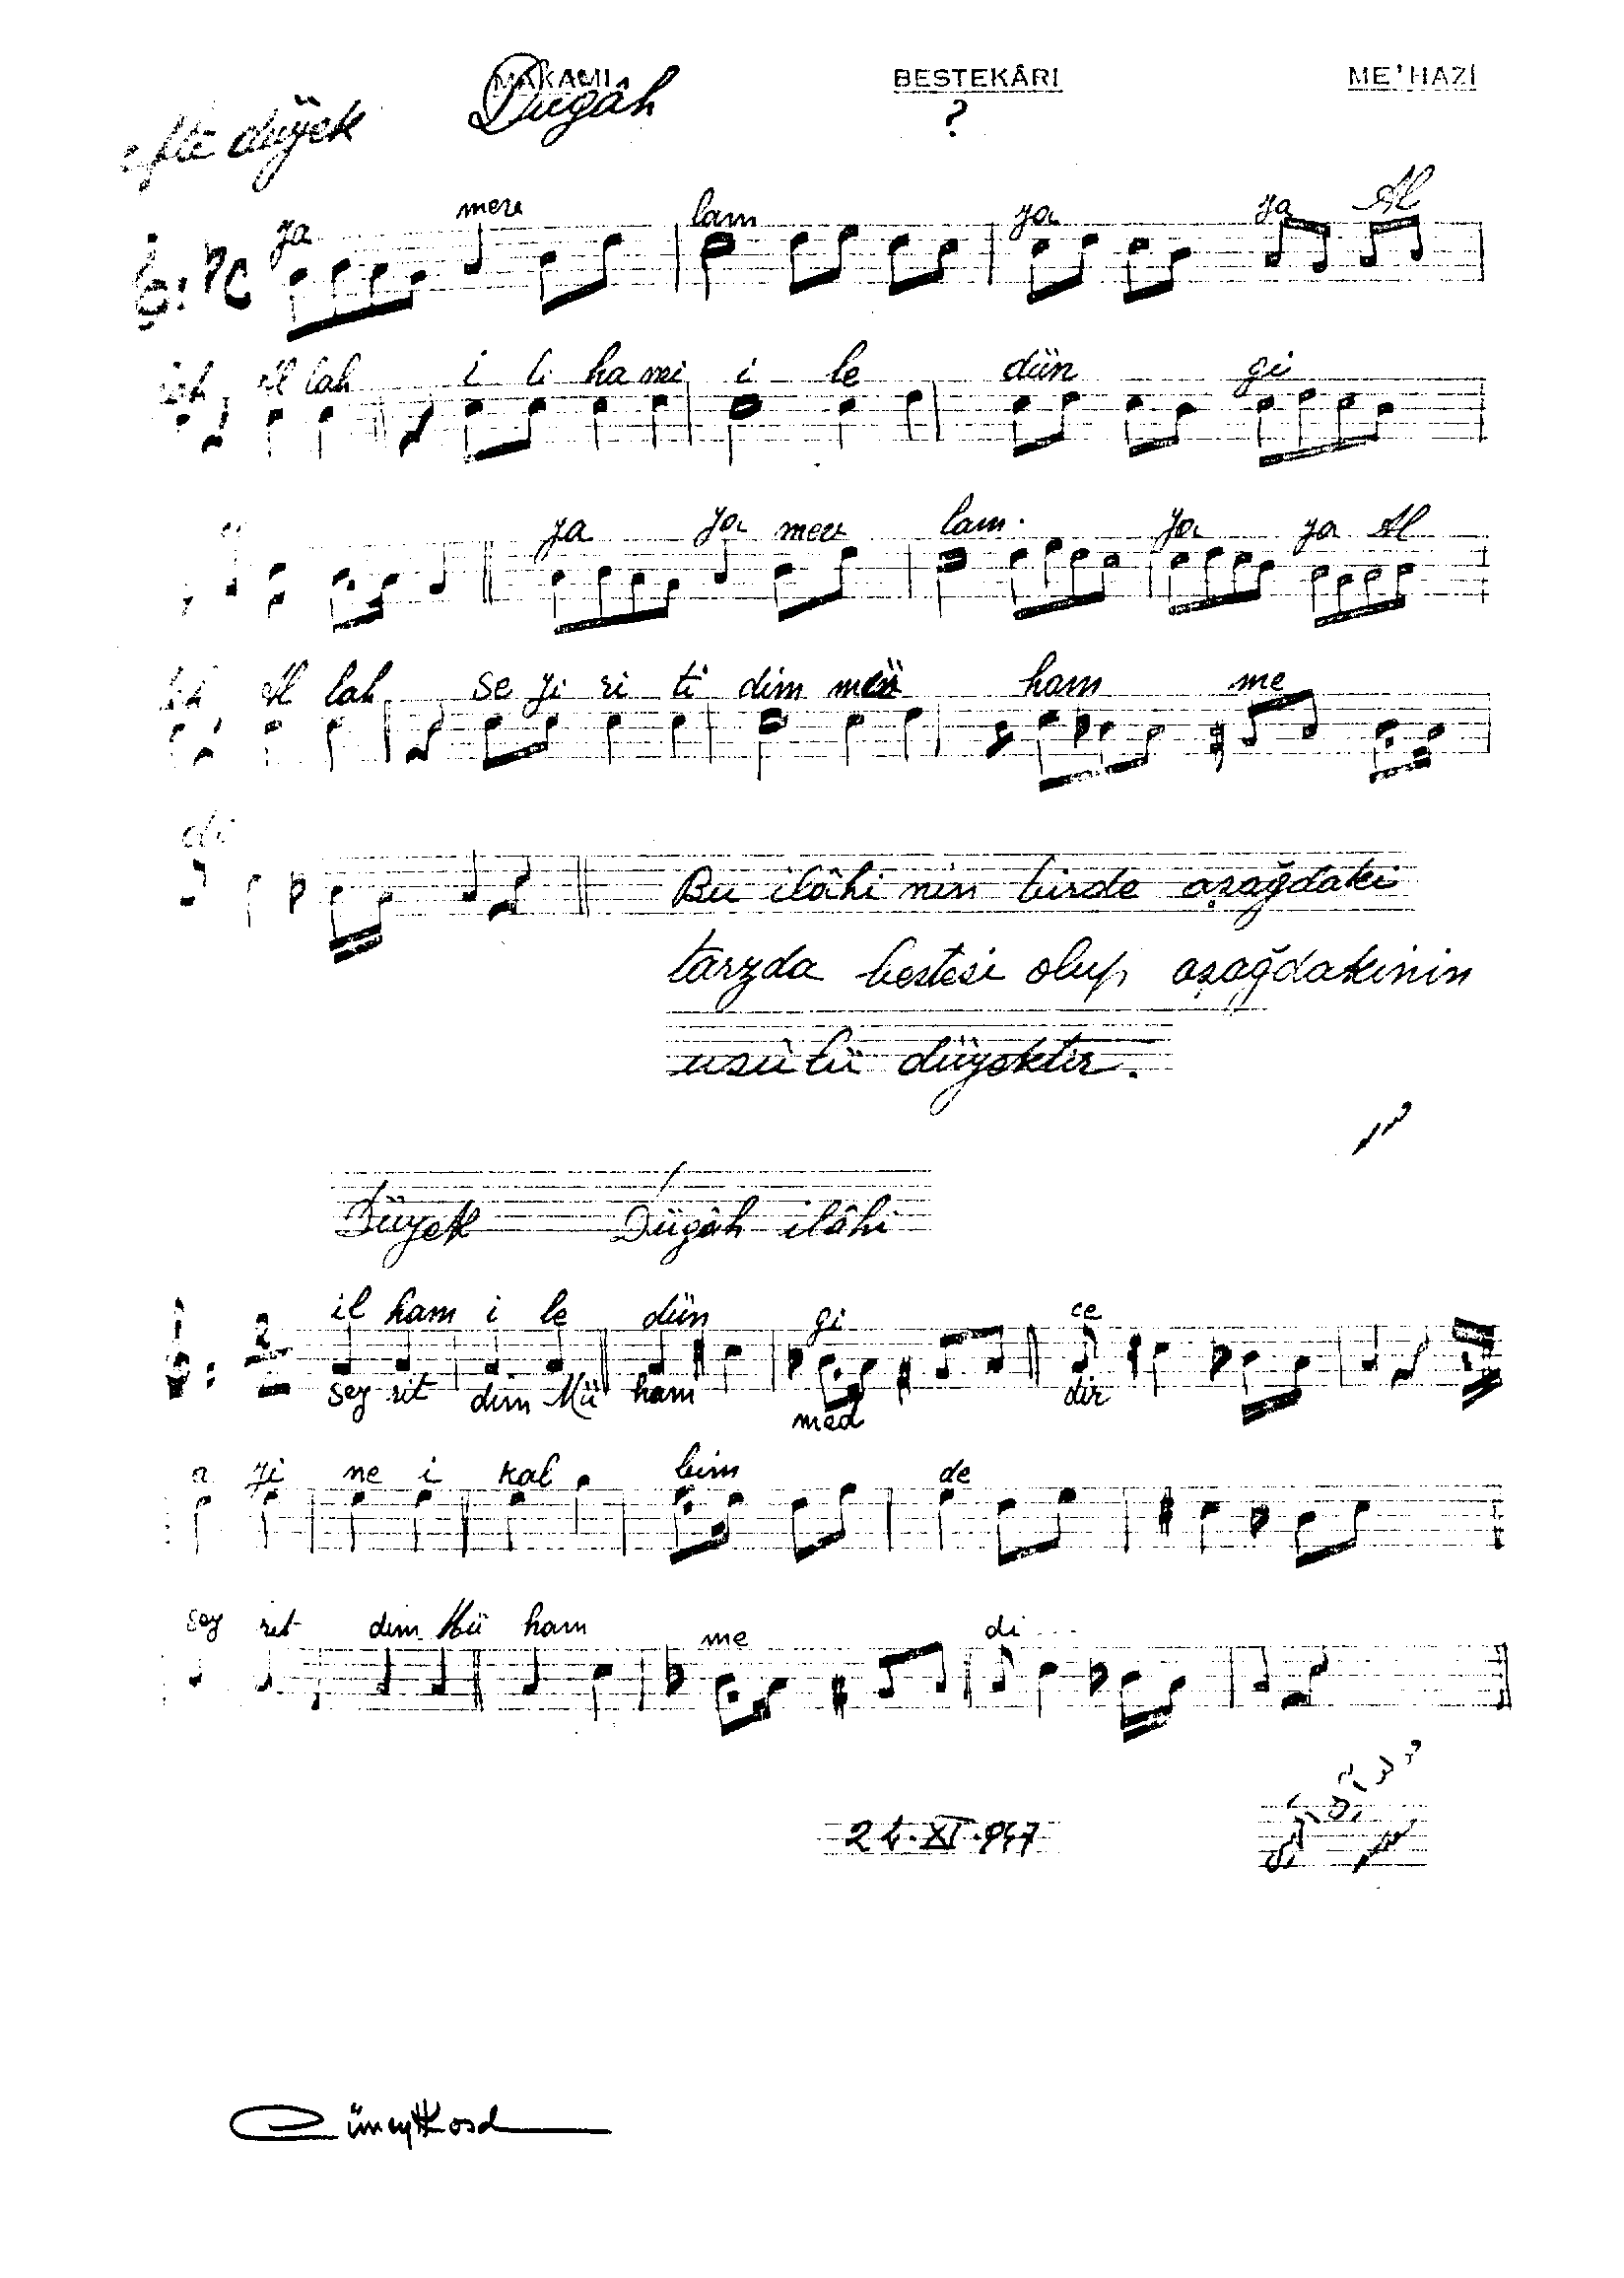 MAKAMI BESTEKÂRI ME'HAZİ
düyek Dügâh ?
ya mere lam ya ya Al
Al lah i li ha mi i le dün gi
ya ya mere lam. ya ya Al
Al lah se yi ri ti dim mü ham me
di
Bu ilâhi nin birde aşağdaki
tarzda bestesi olup aşağdakinin
usûlü düyektir.
Düyek Dügâh ilâhi
2
il ham i le dün gi ce
sey rit dim Mü ham med dir
a yi ne i kal bim de
sey rit dim Mü ham me di
24·XI·947
Cüneyt Kosal